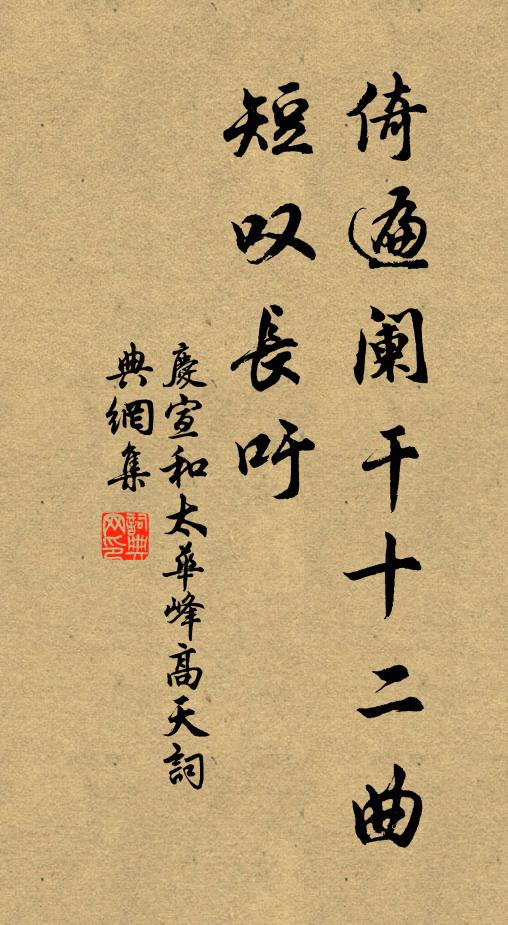 倚遍阑干十二曲
短叹長吁
慶宣和太華峰高天詞
典網集
詞典
网印